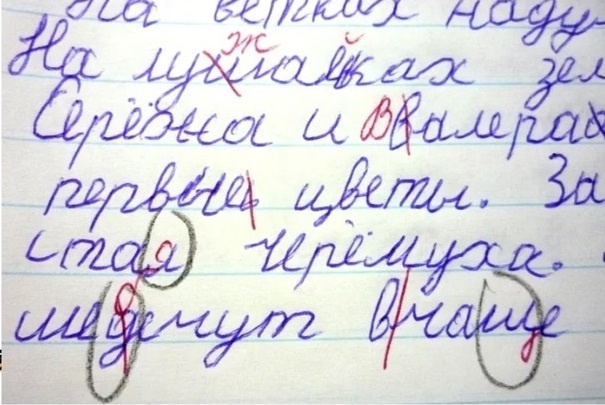 На ветках наду
На лужайках зел
Серёжа и Валера
первые цветы. За
стая черёмуха.
щебечут в чаще